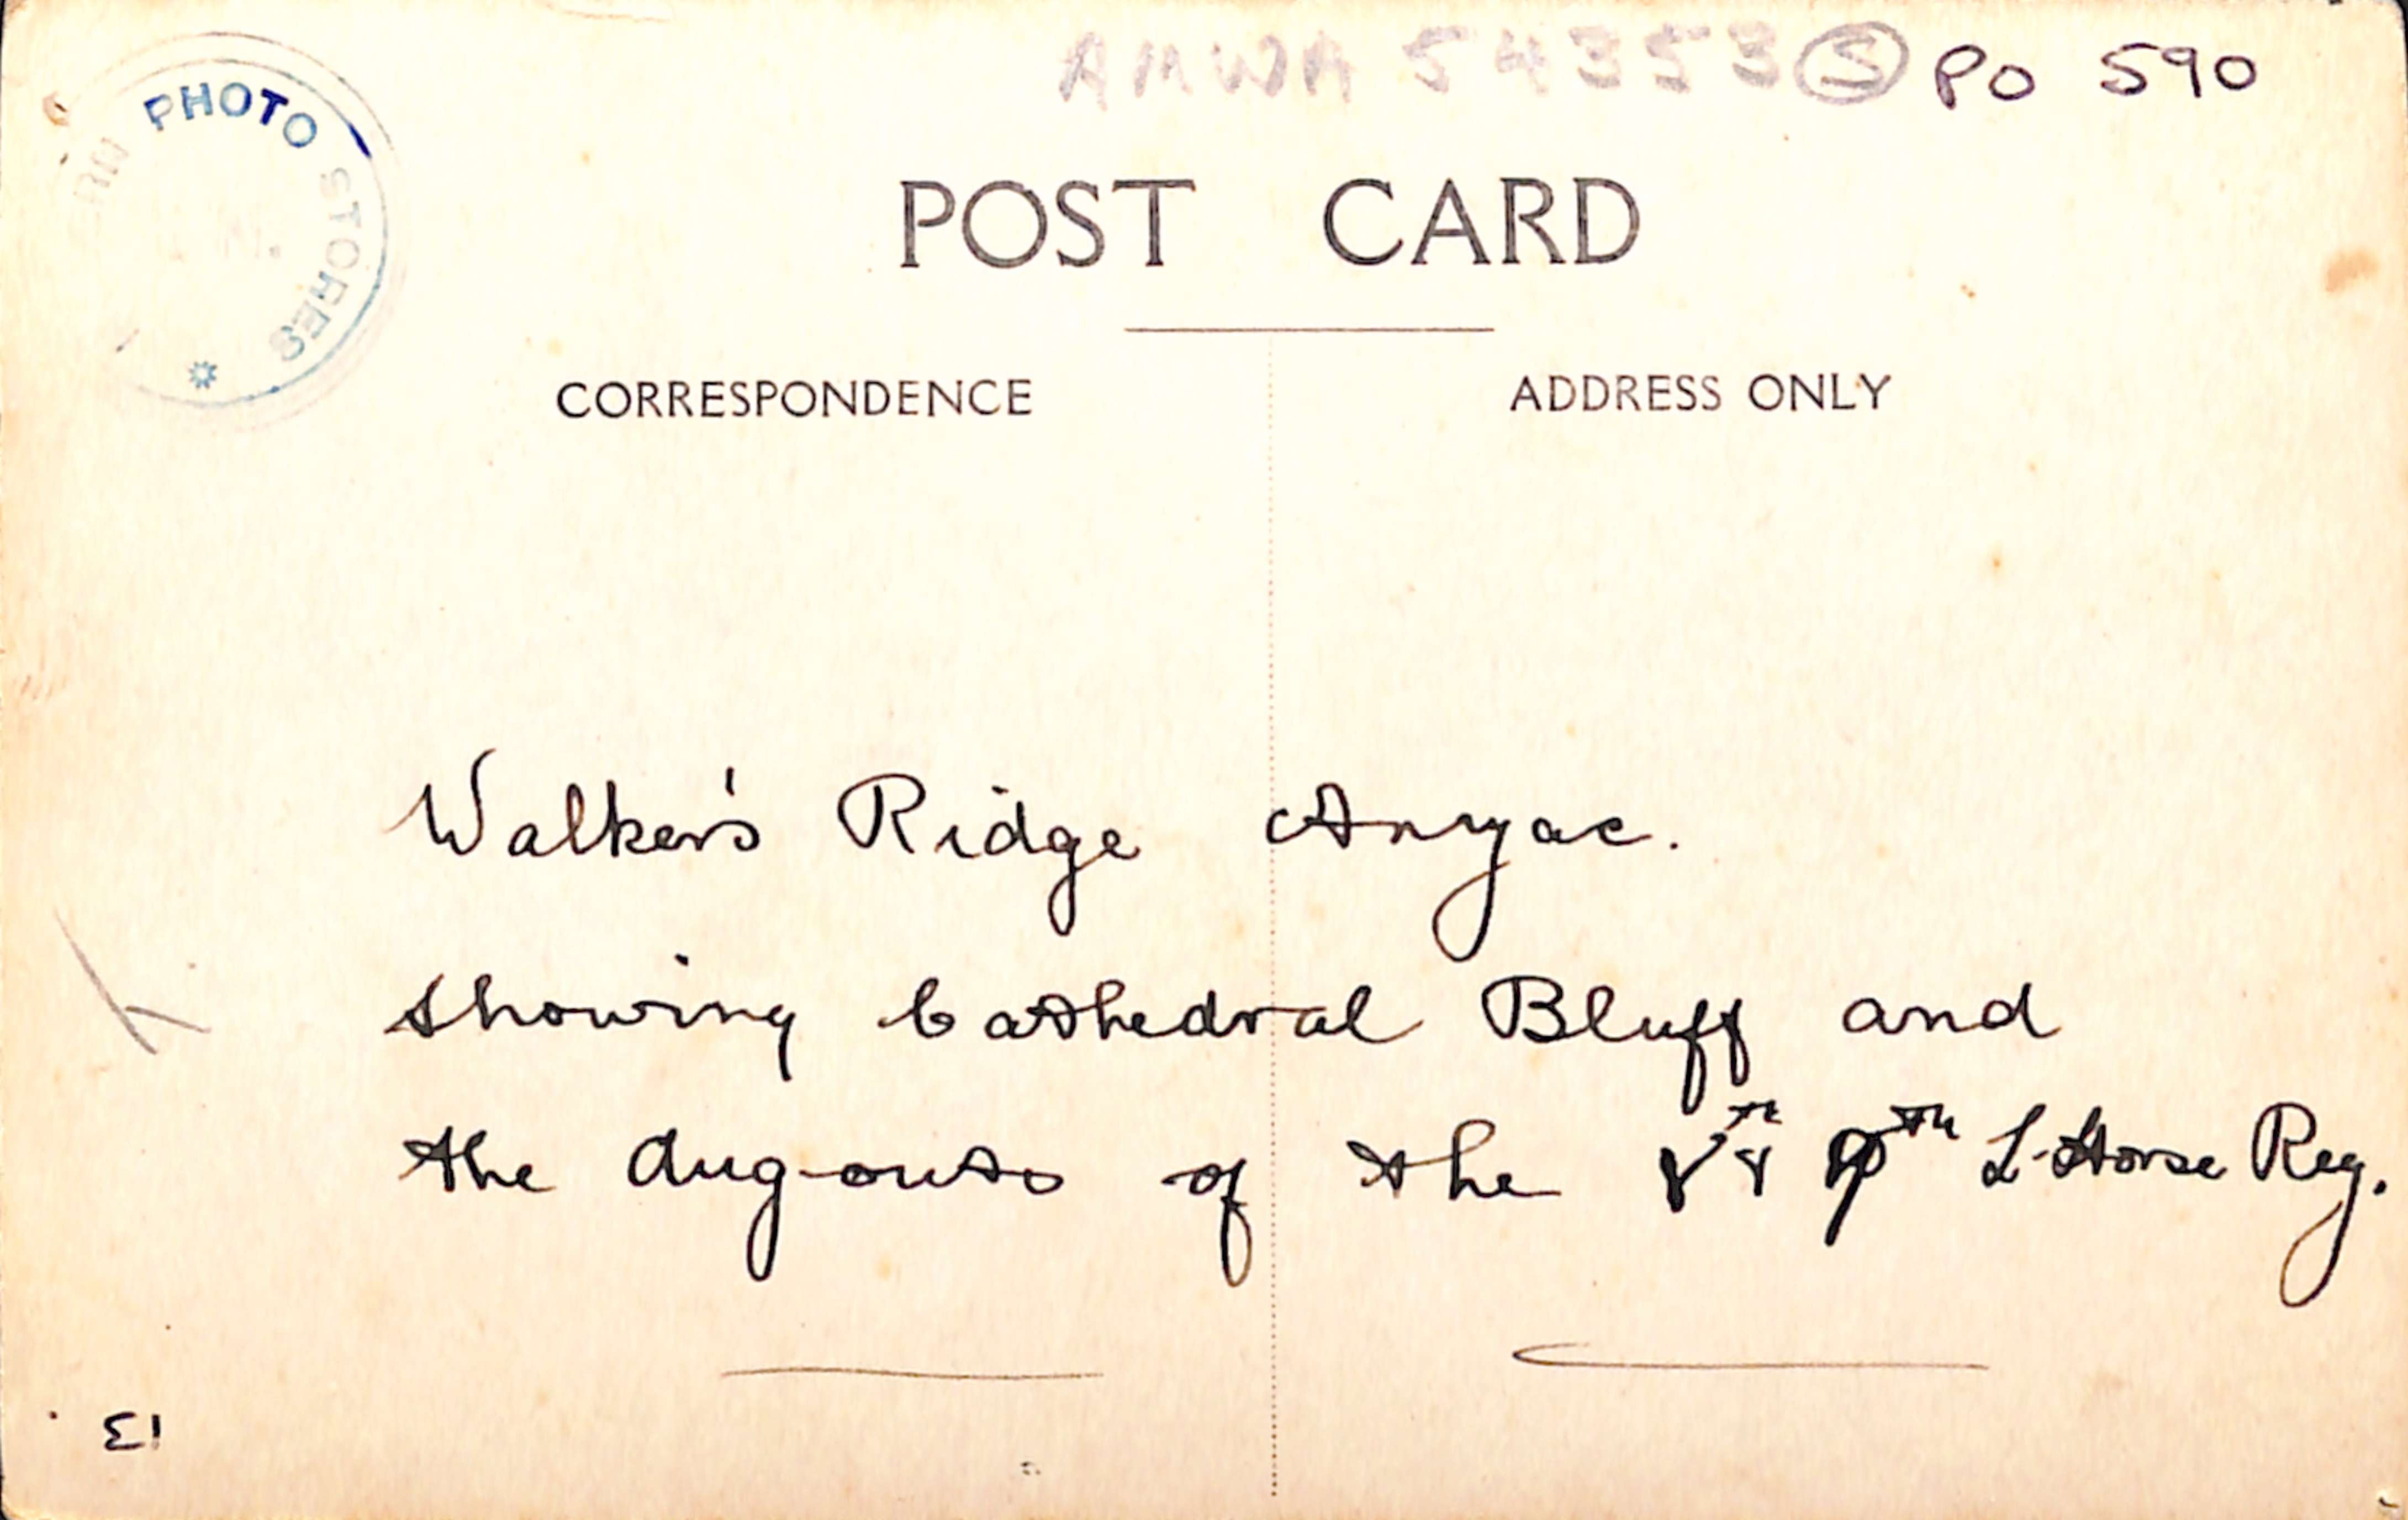 AMWA 54353 S PO 590
PHOTO STORES
POST CARD
CORRESPONDENCE ADDRESS ONLY
Walker's Ridge Anzac.
showing Cathedral Bluff and
the dug-outs of the 9th L-Horse Reg.
13